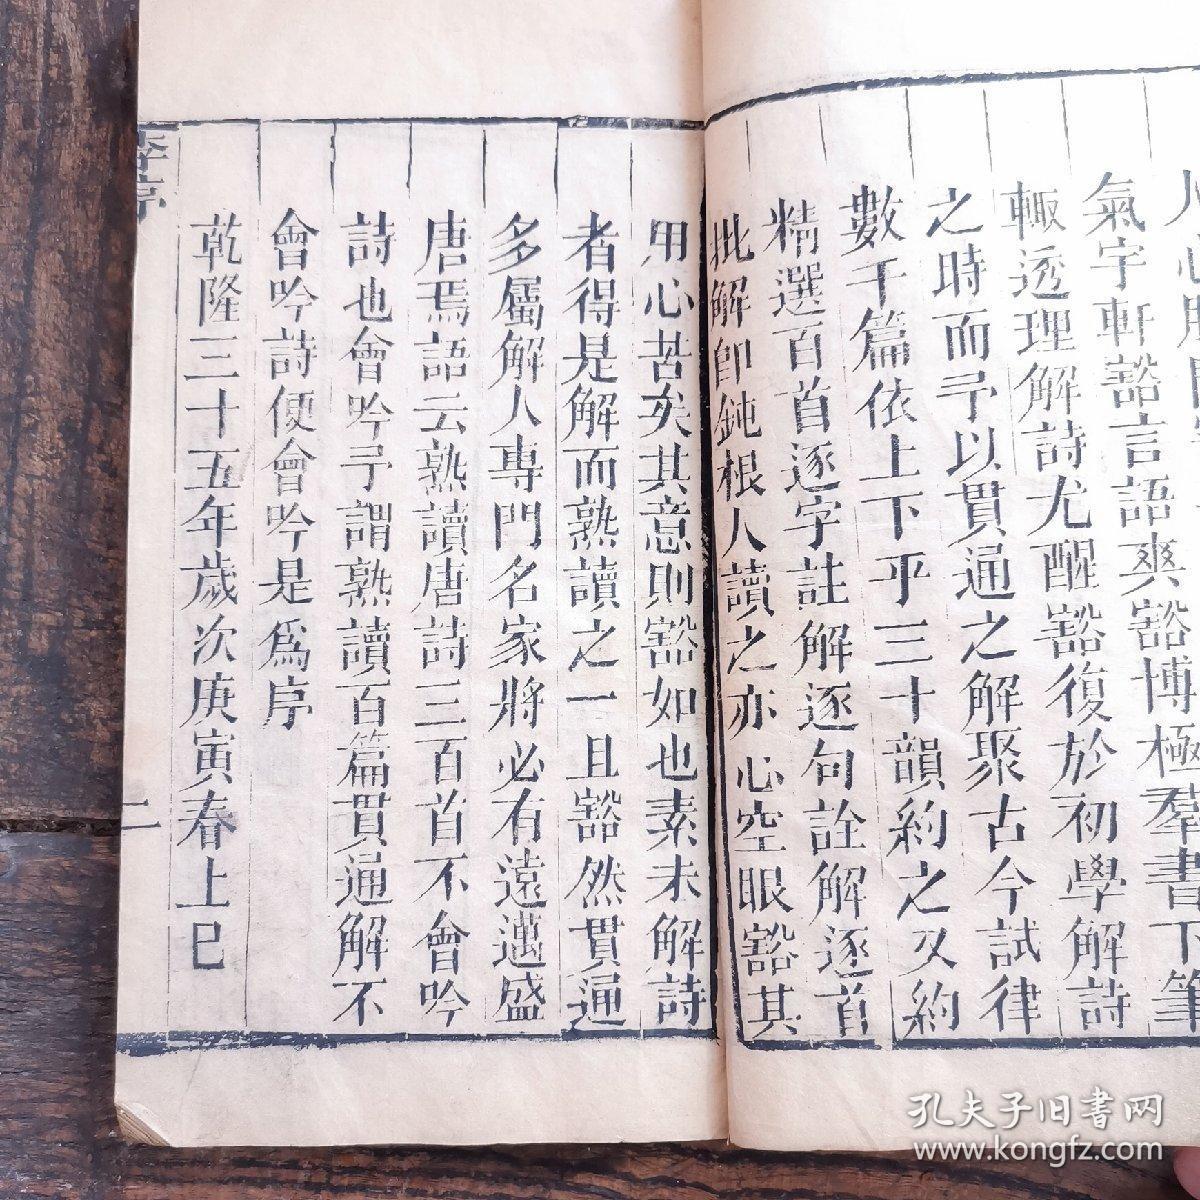 氣宇軒豁言語爽豁博極羣書下筆
輙透理解詩尤醒豁復於初學解詩
之時而予以貫通之解聚古今試律
數千篇依上下平三十韻約之又約
精選百首逐字註解逐句詮解逐首
批解卽鈍根人讀之亦心空眼豁其
用心苦矣其意則豁如也素未解詩
者得是解而熟讀之一旦豁然貫通
多屬解人專門名家將必有遠邁盛
唐焉語云熟讀唐詩三百首不會吟
詩也會吟予謂熟讀百篇貫通解不
會吟詩便會會吟是爲序
乾隆三十五年歲次庚寅春上巳
序
二
孔夫子旧书网
www.kongfz.com